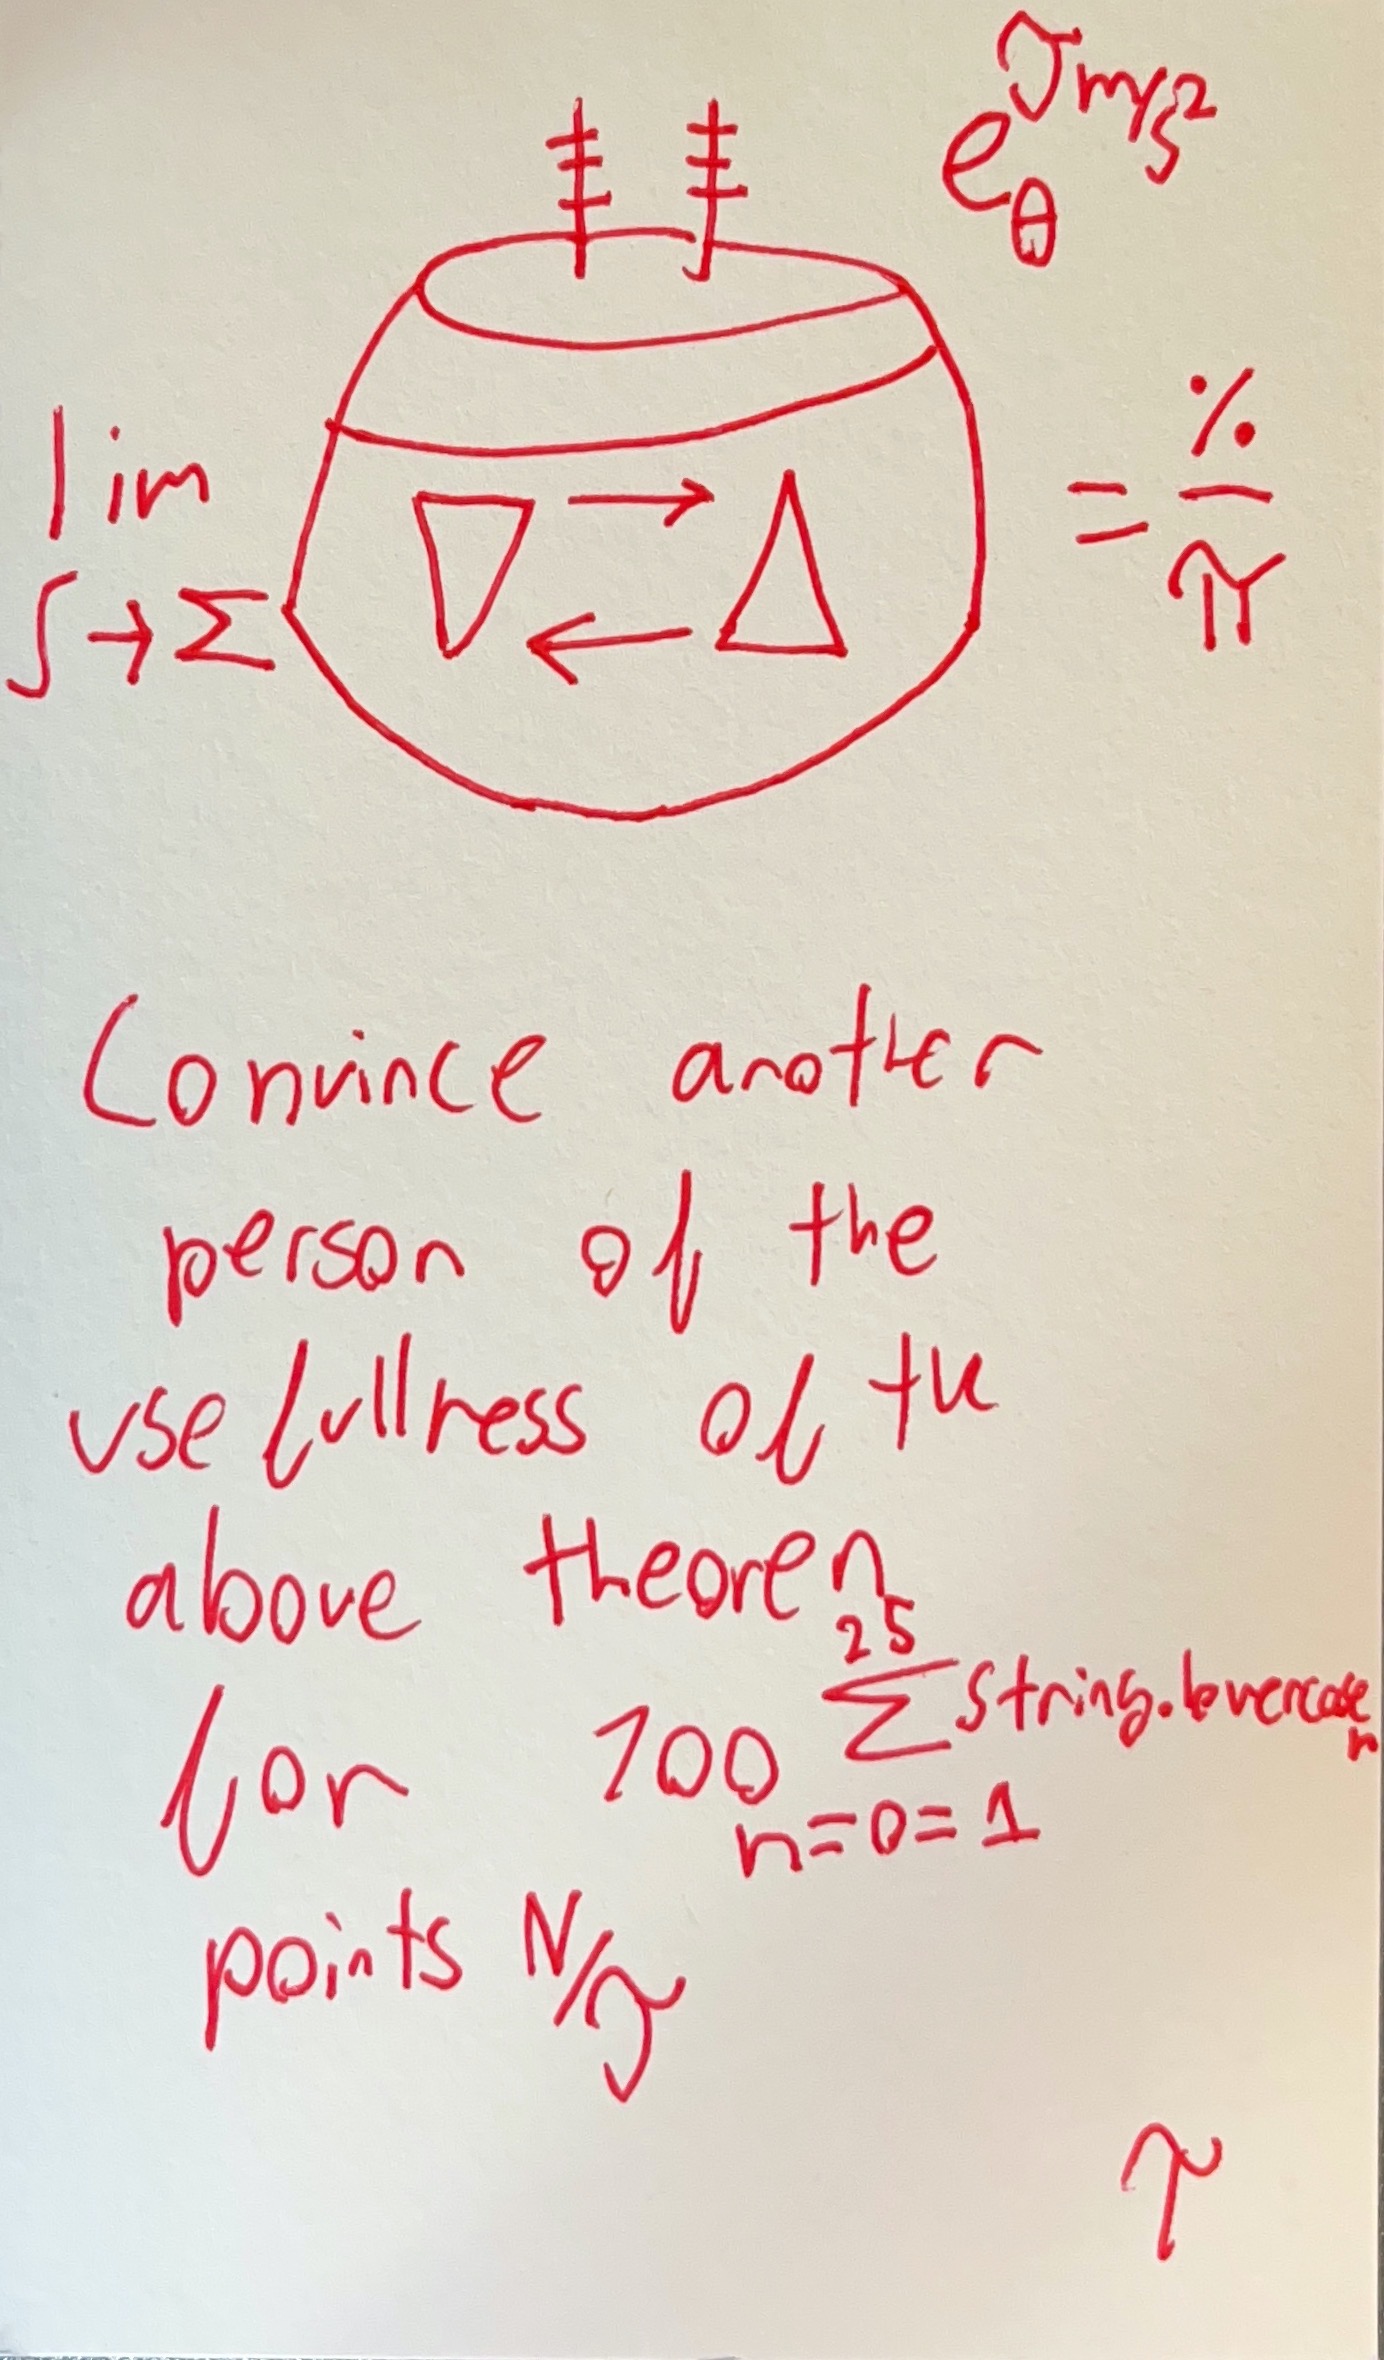 e_θ^τ m/s²
lim
∫→Σ
= % / π
Convince another
person of the
usefullness of the
above theorem
for 100 Σ string.lowercase_n
25
n=0=1
points N/τ
τ